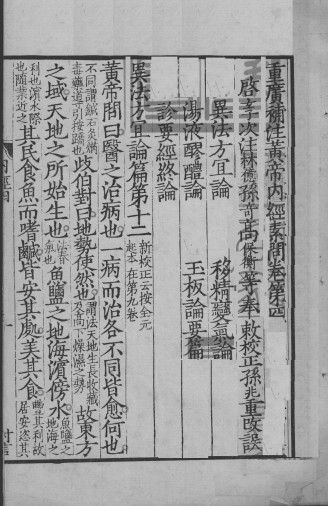 重廣補注黃帝內經素問卷第四
啓玄子次注林億孫奇高保衡等奉敕校正孫兆重改誤
異法方宜論 移精變氣論
湯液醪醴論 玉板論要篇
診要經終論
異法方宜論篇第十二新校正云按全元起本在第九卷
黃帝問曰醫之治病也一病而治各不同皆愈何也
不同謂鍼石灸焫毒藥導引按蹻也歧伯對曰地勢使然也謂法天地生長收藏及高下燥濕之勢故東方
之域天地之所始生也法春氣也魚鹽之地海濱傍水魚鹽之地海之
利也濱水際也隨業近之其民食魚而嗜鹹皆安其處美其食豐其利故居安恣其